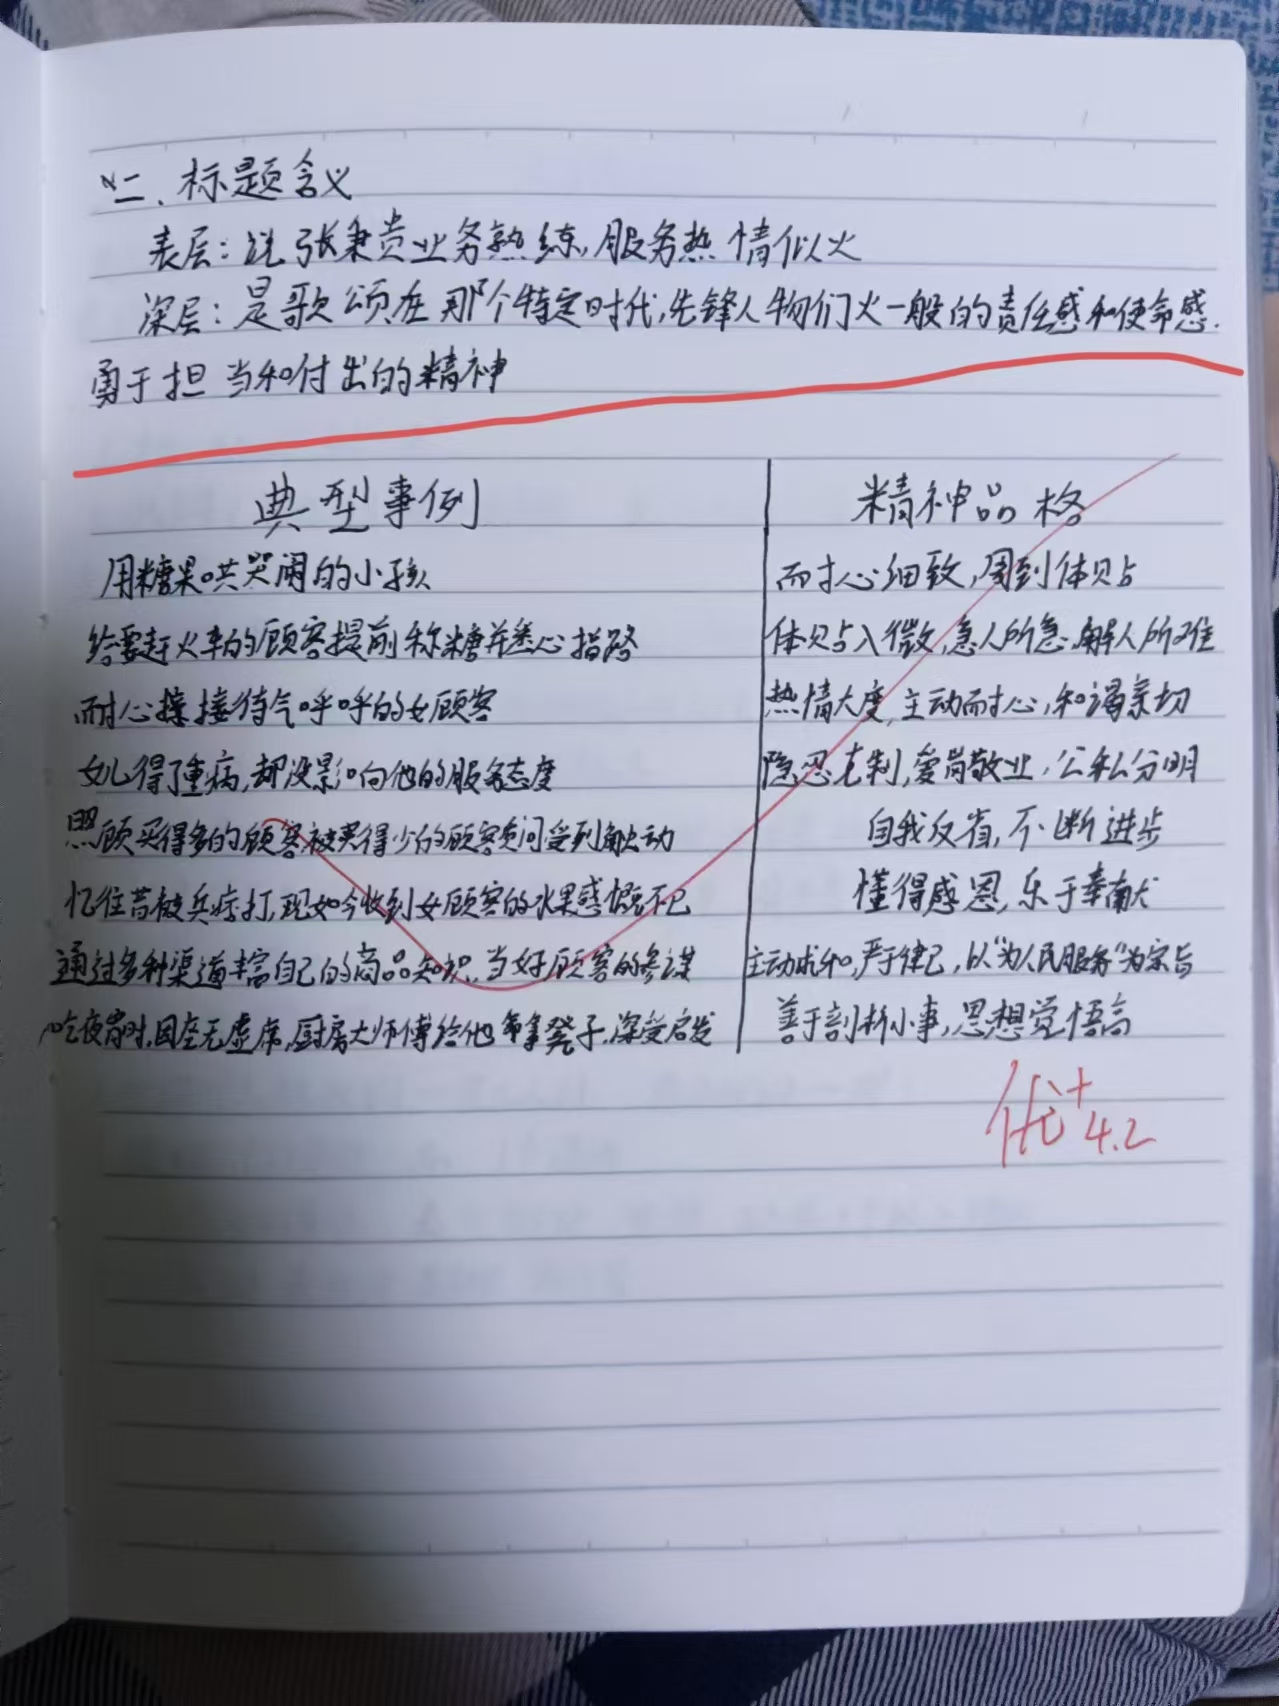 二、标题含义
表层：说张秉贵业务熟练，服务热情似火
深层：是歌颂在那个特定时代，先锋人物们火一般的责任感和使命感.
勇于担当和付出的精神
典型事例 精神品格
用糖果哄哭闹的小孩 耐心细致，周到体贴
给要赶火车的顾客提前称糖并悉心指路 体贴入微，急人所急.解人所难
耐心接待气呼呼的女顾客 热情大度，主动耐心，和谒亲切
女儿得了重病，却没影响他的服务态度 隐忍克制，爱岗敬业，公私分明
照顾买得多的顾客被买得少的顾客质问受到触动 自我反省，不断进步
忆往昔被兵痞打，现如今收到女顾客的水果感慨不已 懂得感恩，乐于奉献
通过多种渠道丰富自己的商品知识.当好顾客的参谋 主动求和，严于律己，以“为人民服务”为宗旨
吃夜宵时，因座无虚席，厨房大师傅给他拿凳子.深受启发 善于剖析小事，思想觉悟高
优+
4.2